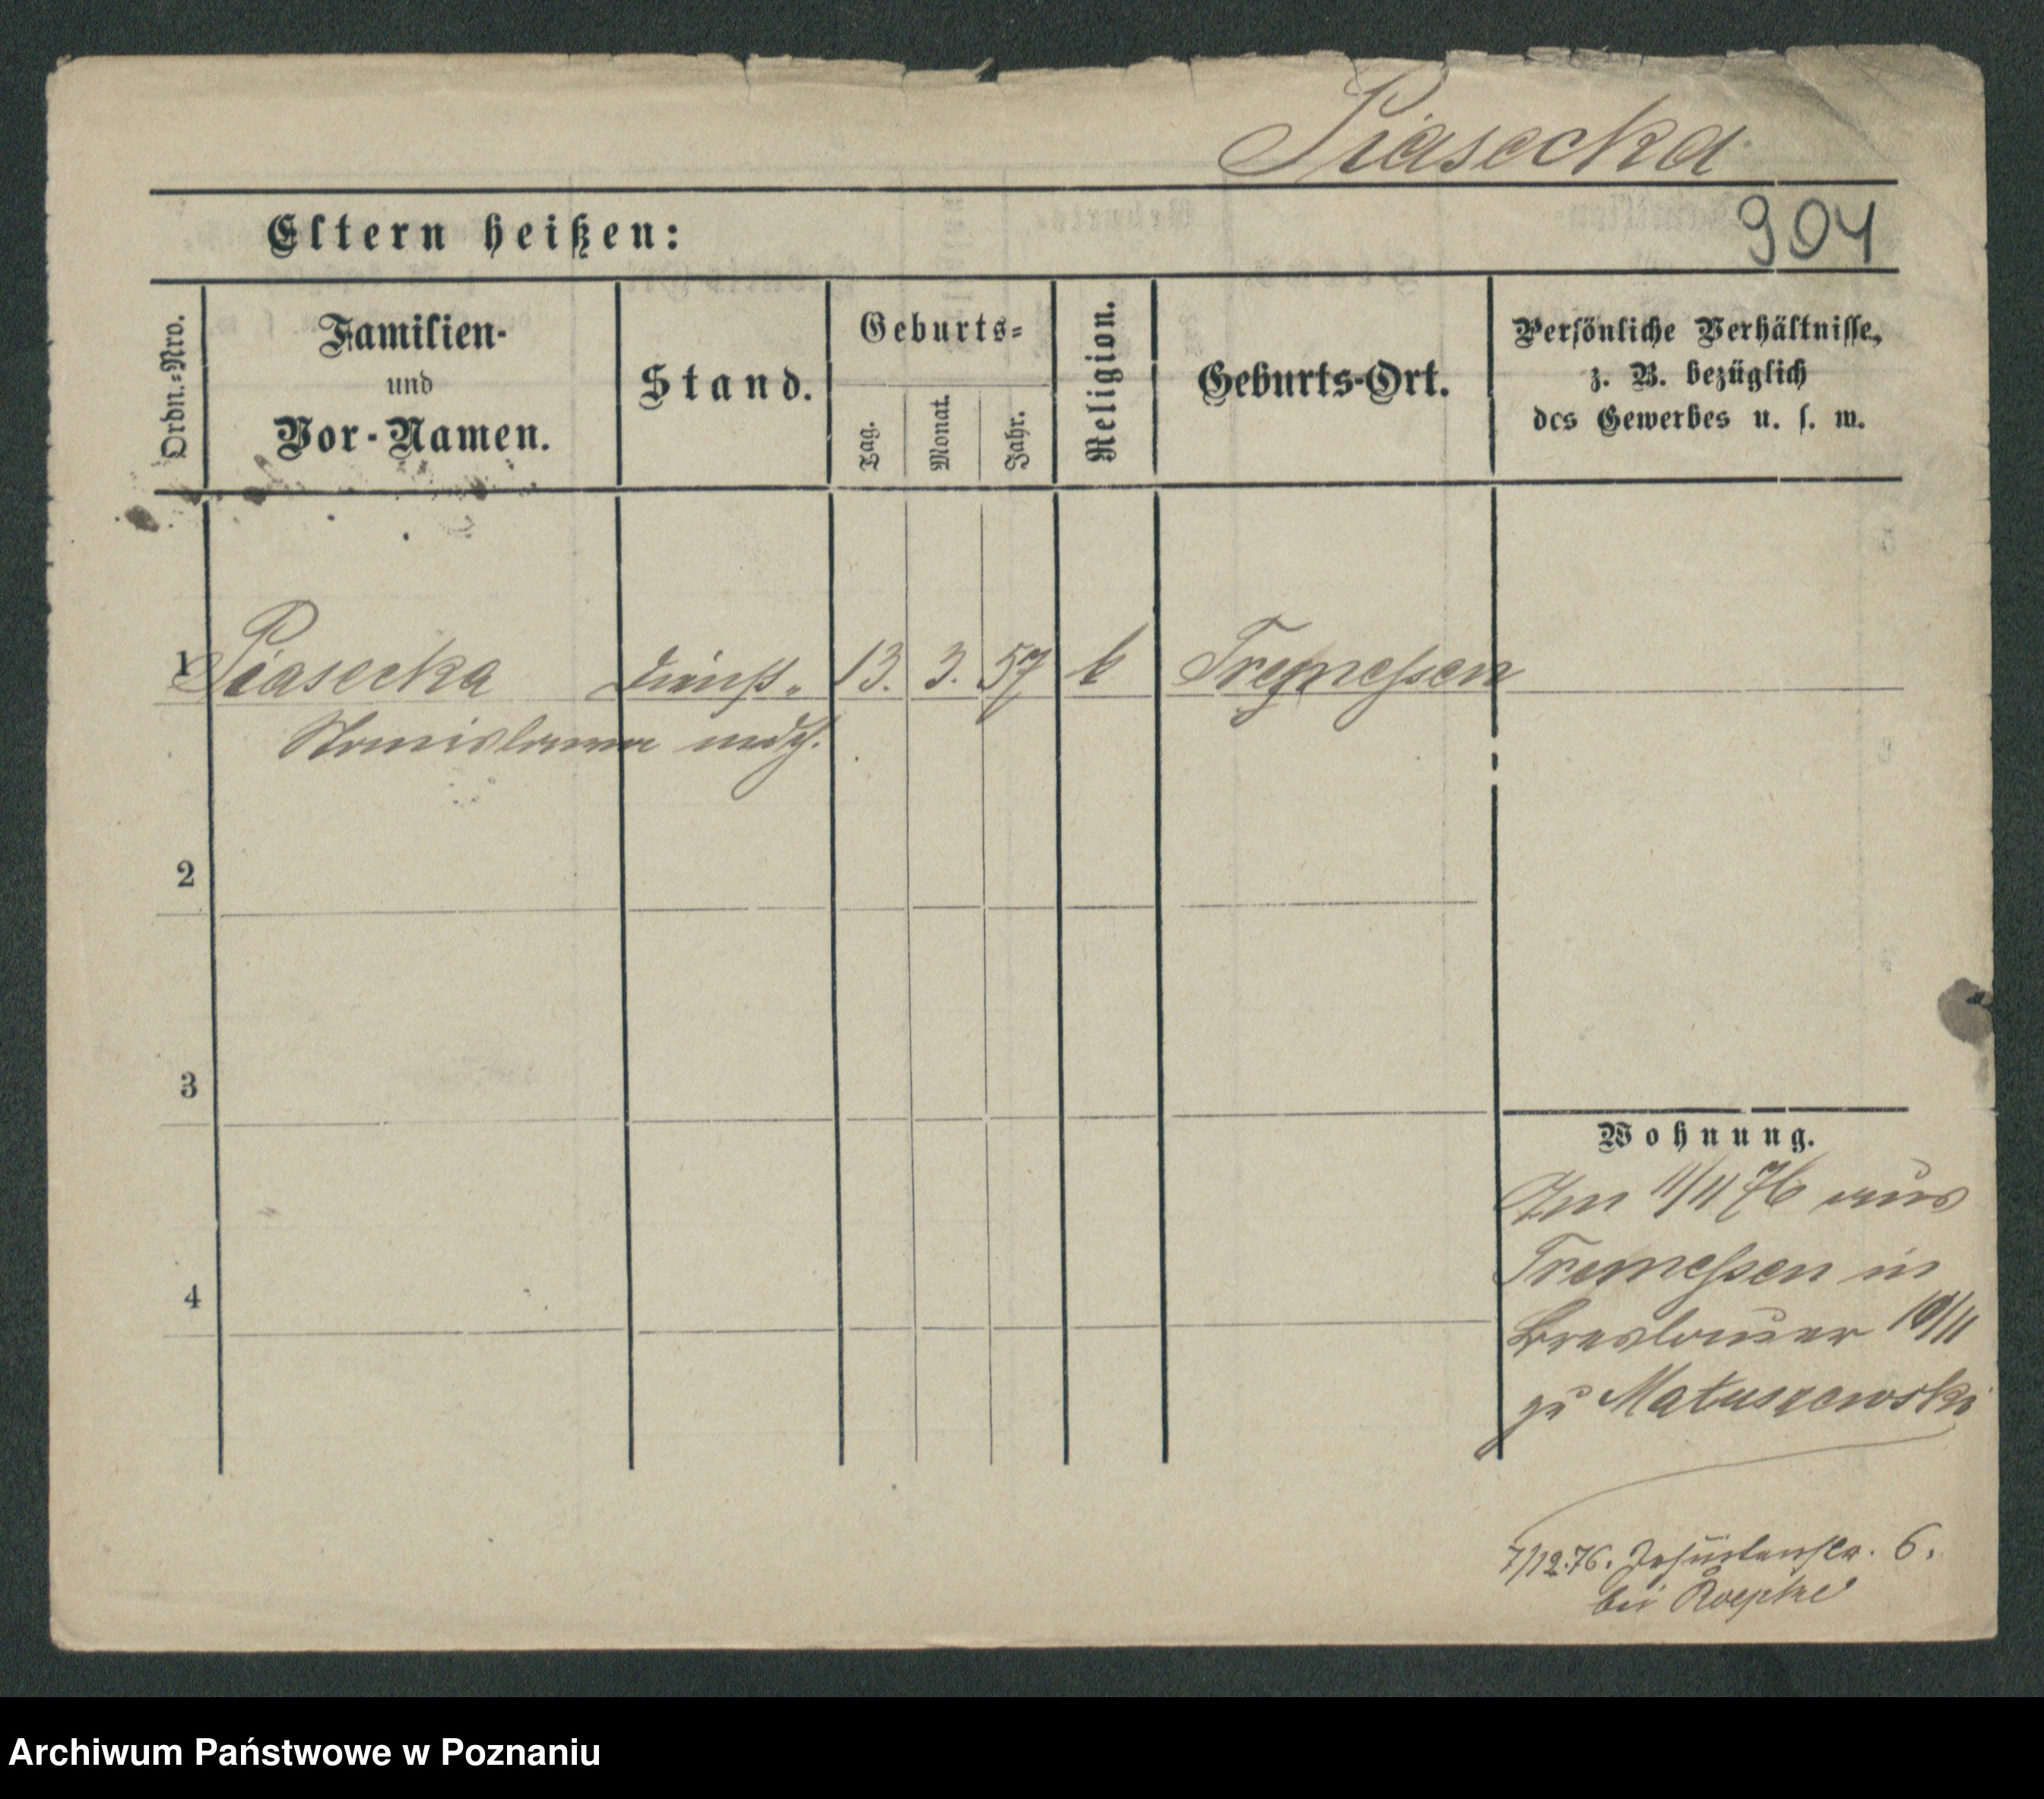 Piasecka
904
Eltern heißen:
Ordn.=Nro.
Familien-
und
Vor-Namen.
Stand.
Geburts=
Tag.
Monat.
Jahr.
Religion.
Geburts-Ort.
Persönliche Verhältnisse,
z. B. bezüglich
des Gewerbes u. s. w.
1 Piasecka Dienst- 13. 3. 57 k Tremessen
Stanislawa mdch.
2
3
4
Wohnung.
Am 11/11 76 aus
Tremessen in
Breslauer 10/11
zu Matuszewski
7/12.76. Jesuitenstr. 6.
bei Roepke
Archiwum Państwowe w Poznaniu